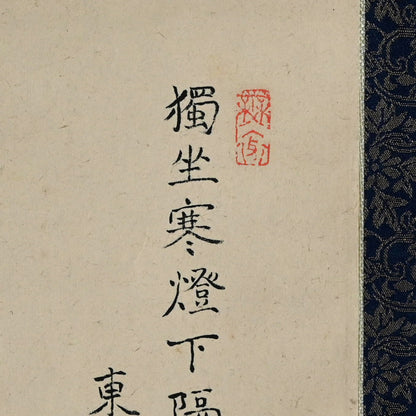 獨坐寒燈下隔
東